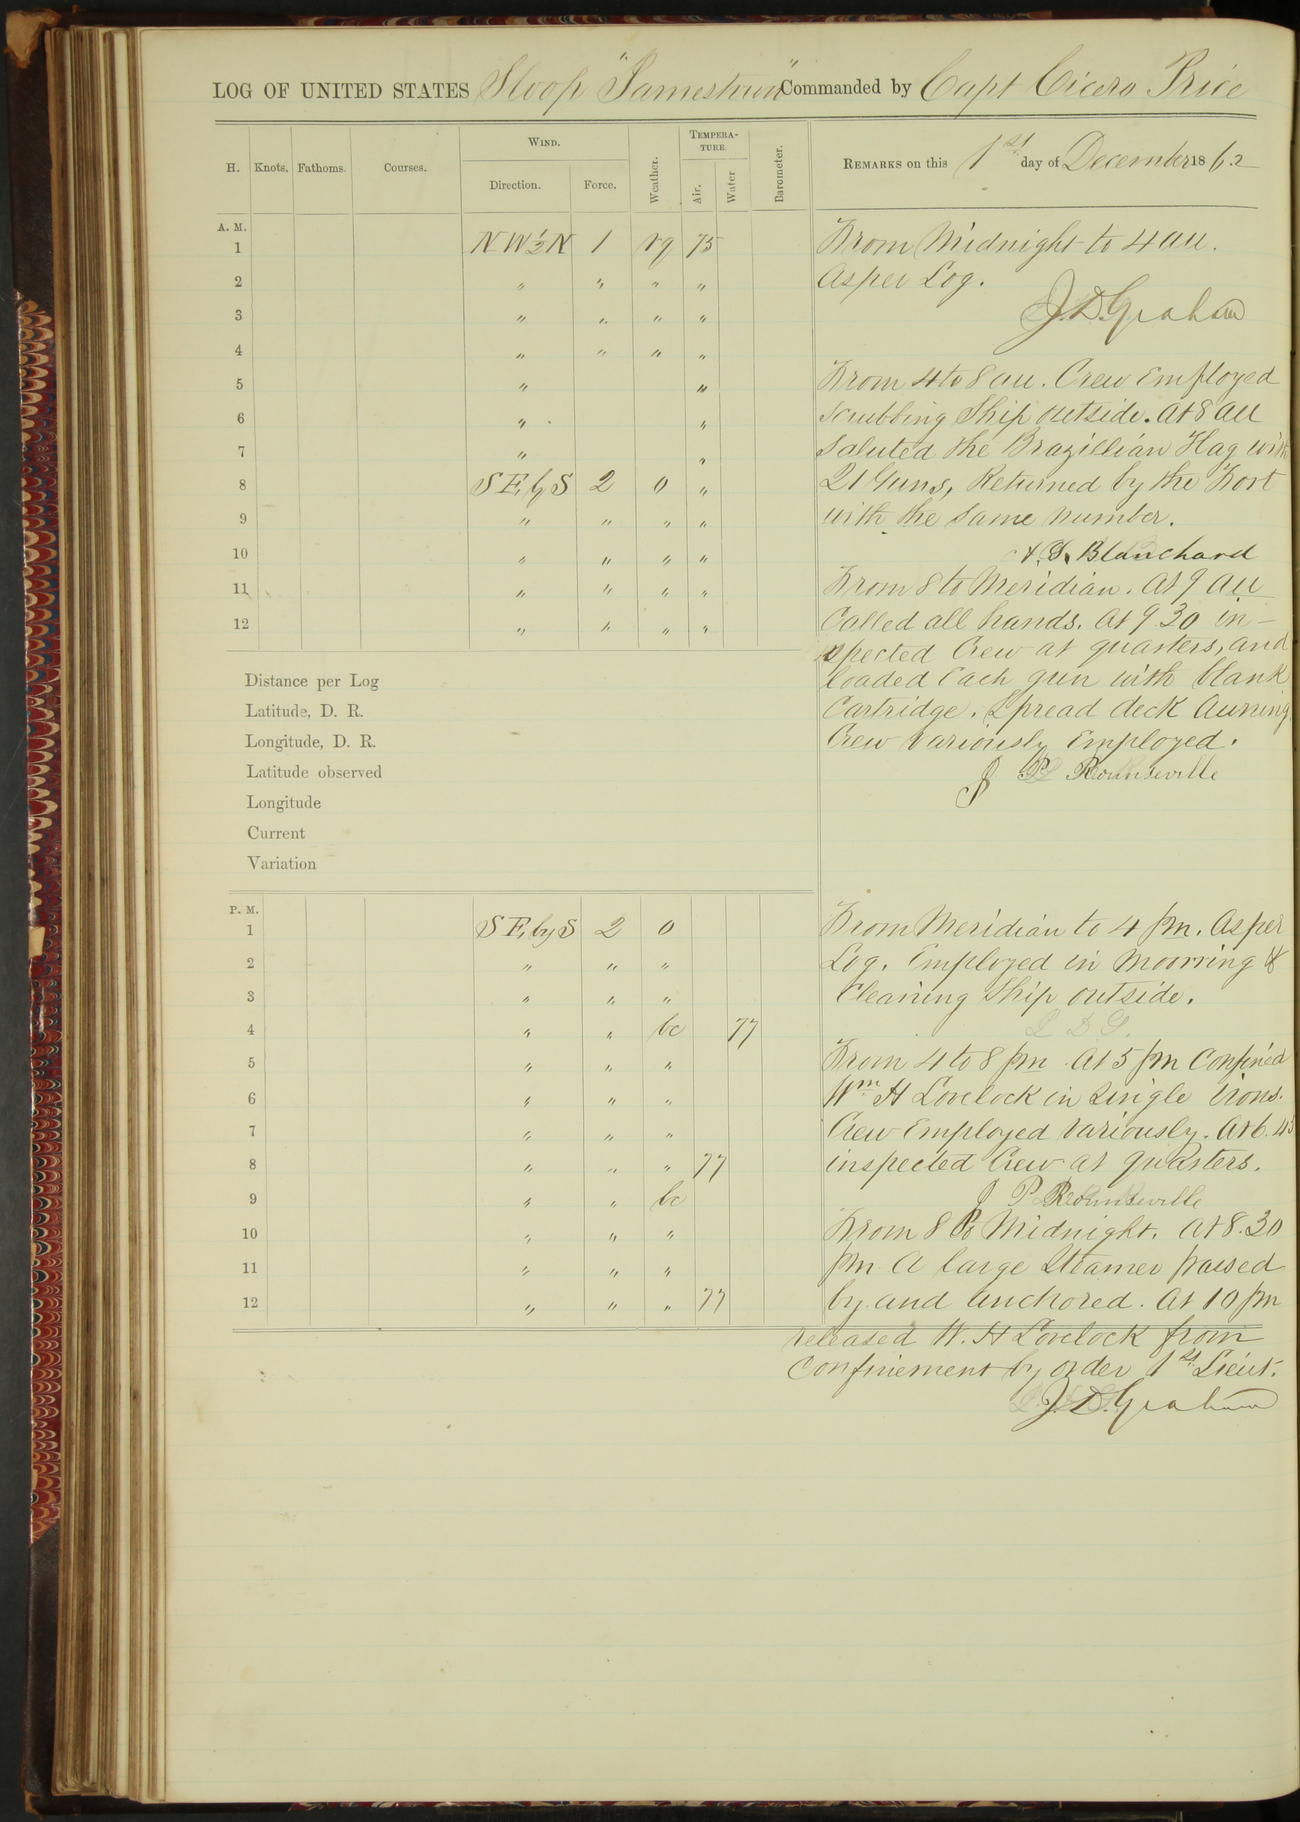 LOG OF UNITED STATES Sloop "Jamestown" Commanded by Capt Cicero Price
H. Knots. Fathoms. Courses. WIND. Direction. Force. Weather. TEMPERATURE. Air. Water Barometer. REMARKS on this 1st day of December 1862
A. M.
1 N W ½ N 1 rq 75
2 " " " "
3 " " " "
4 " " " "
5 " "
6 " "
7 " "
8 S E by S 2 o "
9 " " " "
10 " " " "
11 " " " "
12 " " " "
From Midnight to 4 am.
As per Log.
J. D. Graham
From 4 to 8 am. Crew Employed
scrubbing Ship outside. At 8 am
saluted the Brazillian Flag with
21 Guns, Returned by the Fort
with the same number.
Blanchard
From 8 to Meridian. At 9 am
Called all hands. At 9.30 in-
spected Crew at quarters, and
loaded Each gun with blank
Cartridge. Spread deck Awning.
Crew Variously Employed.
J P Rounseville
Distance per Log
Latitude, D. R.
Longitude, D. R.
Latitude observed
Longitude
Current
Variation
P. M.
1 S E, by S 2 o
2 " " "
3 " " "
4 " " bc 77
5 " " "
6 " " "
7 " " "
8 " " " 77
9 " " bc
10 " " "
11 " " "
12 " " " 77
From Meridian to 4 pm. As per
Log. Employed in Moorring &
Cleaning Ship outside.
D G.
From 4 to 8 pm At 5 pm Confined
Wm H Lovelock in Single irons.
Crew Employed Variously. At 6.45
inspected Crew at quarters.
J P Rounseville
From 8 to Midnight. At 8.30
pm A large Steamer passed
by and anchored. At 10 pm
released W. H Lovelock from
Confinement by order 1st Lieut.
J. D. Graham